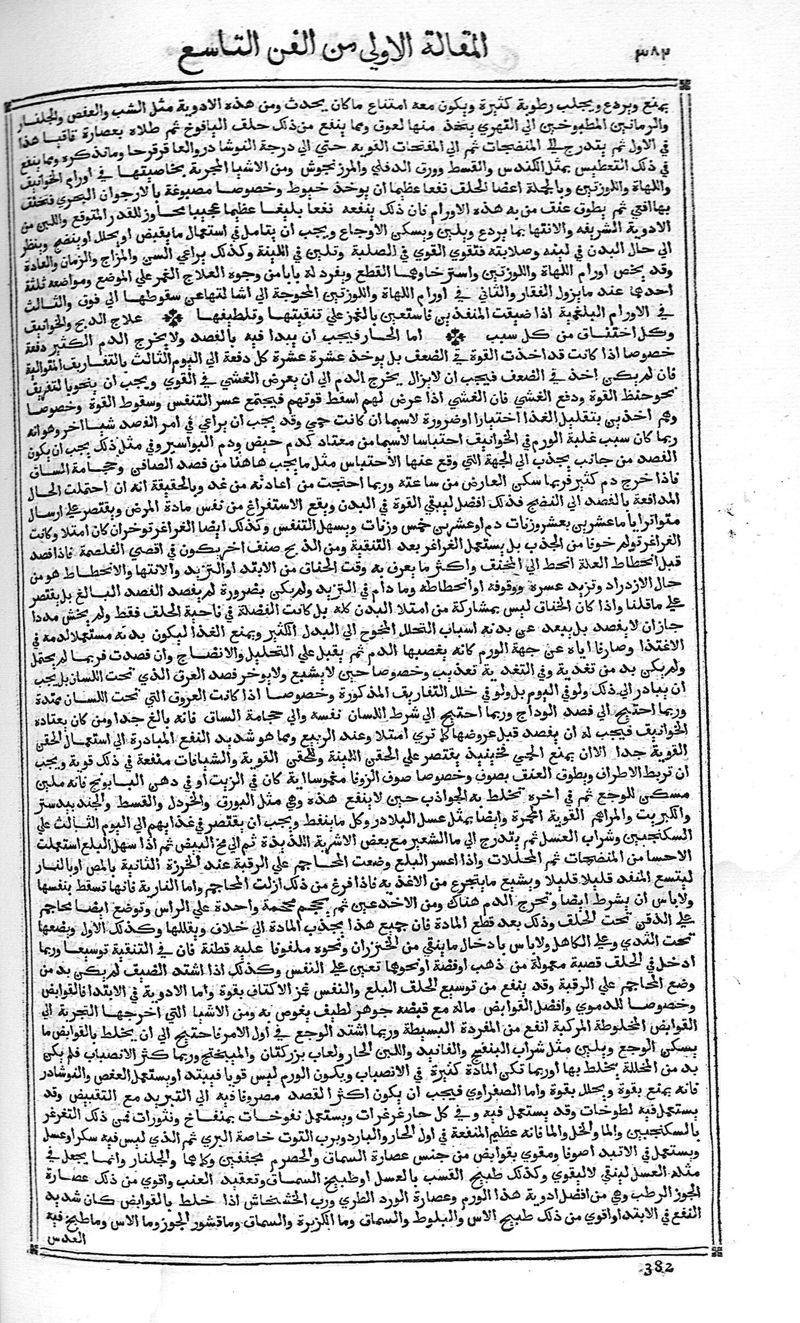 المقالة الاولي من الفن التاسع
٣٨٢
يمنع ويردع ويجلب رطوبة كثيرة ويكون معه امتناع ماكان يحدث ومن هذه الادوية مثل الشب والعفص والجلنار
والرمانين المطبوخين الي التهري يتخذ منها لعوق ومما ينفع من ذلك حلف اليافوخ ثم طلاه بعصارة قاقيا هذا
في الاول ثم يتدرج الي المنضجات ثم الي المفتحات القوية حتي الي درجة النوشادر والعاقرقرحا وماتذكره ومما ينفع
في ذلك التعطيس بمثل الكندس والقسط وورق الدفلي والمرزنجوش ومن الاشيا المجربة بخاصيتها في اورام الخوانيف
واللهاة واللوزتين وبالجملة اعضا الحلف نفعا عظيما ان يوخذ خيوط وخصوصا مصبوغة بالارجوان البحري فتخنف
بها افعي ثم يطوق عنف من به هذه الاورام فان ذلك ينفعه نفعا بليغا عظيما عجيبا مجاوز للقدر المتوقع واللبن من
الادوية الشريفه والانتها بما يردع ويلين ويسكن الاوجاع ويجب ان يتامل في استعمال ما يقبض او يحلل او ينضج وينظر
الي حال البدن في لينه وصلابته فتقوي القوي في الصلبة وتلين في اللينة وكذلك يراعي السن والمزاج والزمان والعادة
وقد يخص اورام اللهاة واللوزتين واسترخاوهما القطع ويفرد له باب ومن وجوه العلاج الغمز علي الموضع ومواضعه ثلثة
احدها عند مايزول الفقار والثاني في اورام اللهاة واللوزتين المحوجة الي اشالتها عن سقوطها الي فوق والثالث
في الاورام البلغمية اذا ضيقت المنفذ بي فاستعين بالغمز علي تنقيتها وتلطيفها علاج الذبح والخوانيف
وكل اختناق من كل سبب اما الحار فيجب ان يبدا فيه بالفصد ولا يخرج الدم الكثير دفعة
خصوصا اذا كانت قد اخذت القوة في الضعف بل يوخذ عشرة عشرة كل دفعة الي اليوم الثالث بالتفاريف المتوالية
فان لم يكن اخذ في الضعف فيجب ان لا يزال يخرج الدم الي ان يعرض الغشي في القوي ويجب ان ينحو بالتفريف
نحو حفظ القوة ودفع الغشي فان الغشي اذا عرض لهم اسقط قوتهم فيجتمع عسر التنفس وسقوط القوة وخصوصا
وهم اخذين بتقليل الغذا اختيارا او ضرورة لاسيما ان كانت حمي وقد يجب ان يراعي في امر الفصد شيا اخر وهو انه
ربما كان سبب غلبة الورم في الخوانيف احتباسا لاسيما من معتاد كدم حيض ودم البواسير وفي مثل ذلك يجب ان يكون
الفصد من جانب يجذب الي الجهة التي وقع عنها الاحتباس مثل ما يجب هاهنا من فصد الصافن وحجامة الساف
فاذا خرج دم كثير فربما سكن العارض من ساعته وربما احتجت من اعادته من غد وبالحقيقة انه ان احتملت الحال
المدافعة بالفصد الي النضج فذلك افضل ليبقي القوة في البدن ويقع الاستفراغ من نفس مادة المرض ويقتصر علي ارسال
متواتر اياما عشرين بعشر وزنات دم او عشرين خمس وزنات ويسهل التنفس وكذلك ايضا الغراغر توخر ان كان امتلا وكانت
الغراغر تولم خوفا من الجذب بل يستعمل الغراغر بعد التنقية ومن الذبح صنف اخر يكون في اقصي الغلصمة فاذا فصد
قبل انحطاط العلة انحط الي المخنف واكثر ما يعرف به وقت الخناق من الابتدا والتزيد والانتها والانحطاط هو من
حال الازدراد وتزيد عسره ووقوفه او انحطاطه وما دام في التزيد ولم يكن بضرورة لم يفصد الفصد البالغ بل يقتصر
علي ماقلنا واذا كان الخناق ليس بمشاركة من امتلا البدن كله بل كانت الفضلة في ناحية الحلف فقط ولم يخش مددا
جاز ان لا يفصد بل يبعد عن بدنه اسباب التحلل المحوج الي البدل الكثير ويمنع الغذا ليكون بدنه مستعملا لدمه في
الاغتذا وصارفا اياه عن جهة الورم كانه يغصبها الدم ثم يقبل علي التحليل والانضاج وان فصدت فربما لم يحتمل
ولم يكن بد من تغذية وفي التغدية تعذيب وخصوصا حين لا يشبع ولا يوخر فصد العرق الذي تحت اللسان بل يجب
ان يبادر الي ذلك ولو في اليوم بل ولو في خلل التفاريف المذكورة وخصوصا اذا كانت العروق التي تحت اللسان ممتدة
وربما احتيج الي فصد الوداج وربما احتيج الي شرط اللسان نفسه والي حجامة الساف فانه بالغ جدا ومن كان يعتاده
الخوانيف فيجب له ان يفصد قبل عروضها كما تري امتلا وعند الربيع ومما هو شديد النفع المبادرة الي استعمال الحقن
القوية جدا الا ان يمنع الحمي فحينيذ يقتصر علي الحقن اللينة وللحقن القوية والشيافات منفعة في ذلك قوية ويجب
ان تربط الاطراف ويطوق العنف بصوف وخصوصا صوف الزوفا مغموسا اية كان في الزيت او في دهن البابونج فانه ملين
مسكن للوجع ثم في اخره تخلط به الجواذب حين لا ينفع هذه وهي مثل البورق والخردل والقسط والجندبيدستر
والكبريت والمراهم القوية المحمرة وايضا بمثل عسل البلادر وكل ماينفط ويجب ان يقتصر في غذايهم الي اليوم الثالث علي
السكنجبين وشراب العسل ثم يتدرج الي ما الشعير مع بعض الاشربة اللذيذة ثم الي مخ البيض ثم اذا سهل البلع استعملت
الاحسا من المنضجات ثم المحللات واذا اعسر البلع وضعت المحاجم علي الرقبة عند الخرزة الثانية بالمص او بالنار
ليتسع المنفذ قليلا قليلا ويشبع ما يتجرع من الاغذيه فاذا فرغ من ذلك ازلت المحاجم واما النارية فانها تسقط بنفسها
ولا باس ان يشرط ايضا ونخرج الدم هناك ومن الاخدعين ثم يحجم محجمة واحدة علي الراس وتوضع ايضا محاجم
علي الذقن تحت الحلف وذلك بعد قطع المادة فان جميع هذا يجذب المادة الي خلاف ويقللها وكذلك الاول وبضعها
تحت الثدي وعلي الكاهل ولا باس بادخال ما ينقي من الخيزران ونحوه ملفوفا عليه قطنة فان في التنقية توسيعا وربما
ادخل في الحلف قصبة معمولة من ذهب او فضة او نحوها تعين علي النفس وكذلك اذا اشتد الضيف لم يكن بد من
وضع المحاجم علي الرقبة وقد ينفع من توسيع الحلف البلع والنفس غمز الاكتاف بقوة واما الادوية في الابتدا فالقوابض
وخصوصا للدموي وافضل القوابض ماله مع قبضه جوهر لطيف يغوص به ومن الاشيا التي اخرجها التجربة الي
القوابض المخلوطة المركبة انفع من المفردة البسيطة وربما اشتد الوجع في اول الامر فاحتيج الي ان يخلط بالقوابض ما
يسكن الوجع ويلين مثل شراب البنفسج والفانيد واللبن الحار ولعاب بزر كتان والميبختج وربما كثر الانصباب فلم يكن
بد من المحللة يخلط بها اورما تكن المادة كثيرة في الانصباب ويكون الورم ليس قويا فيبتد او يستعمل العفص والنوشادر
فانه يمنع بقوة ويحلل بقوة واما الصفراوي فيجب ان يكون اكثر القصد مصروفا فيه الي التبريد مع التقبيض وقد
يستعمل فيه لطوخات وقد يستعمل فيه وفي كل حار غرغرات ويستعمل نفوخات بمنفاخ ونثورات فمن ذلك التغرغر
بالسكنجبين والما والخل والما فانه عظيم المنفعة في اول الحار والبارد ويرب التوت خاصة البري ثم الذي ليس فيه سكر او عسل
ويستعمل في الابتدا صرفا ومقوي بقوابض من جنس عصارة السماق والحصرم مجففين وكلاهما والجلنار وانما يجعل في
مثله العسل لينقي لا ليقوي وكذلك طبيخ القسب بالعسل او طبيخ السماق وتعقيد العنب واقوي من ذلك عصارة
الجوز الرطب وهي من افضل ادوية هذا الورم وعصارة الورد الطري ورب الخشخاش اذا خلط بالقوابض كان شديد
النفع في الابتدا واقوي من ذلك طبيخ الاس والبلوط والسماق وما الكزبرة والسماق وما قشور الجوز وما الاس وما طبخ فيه
العدس
382